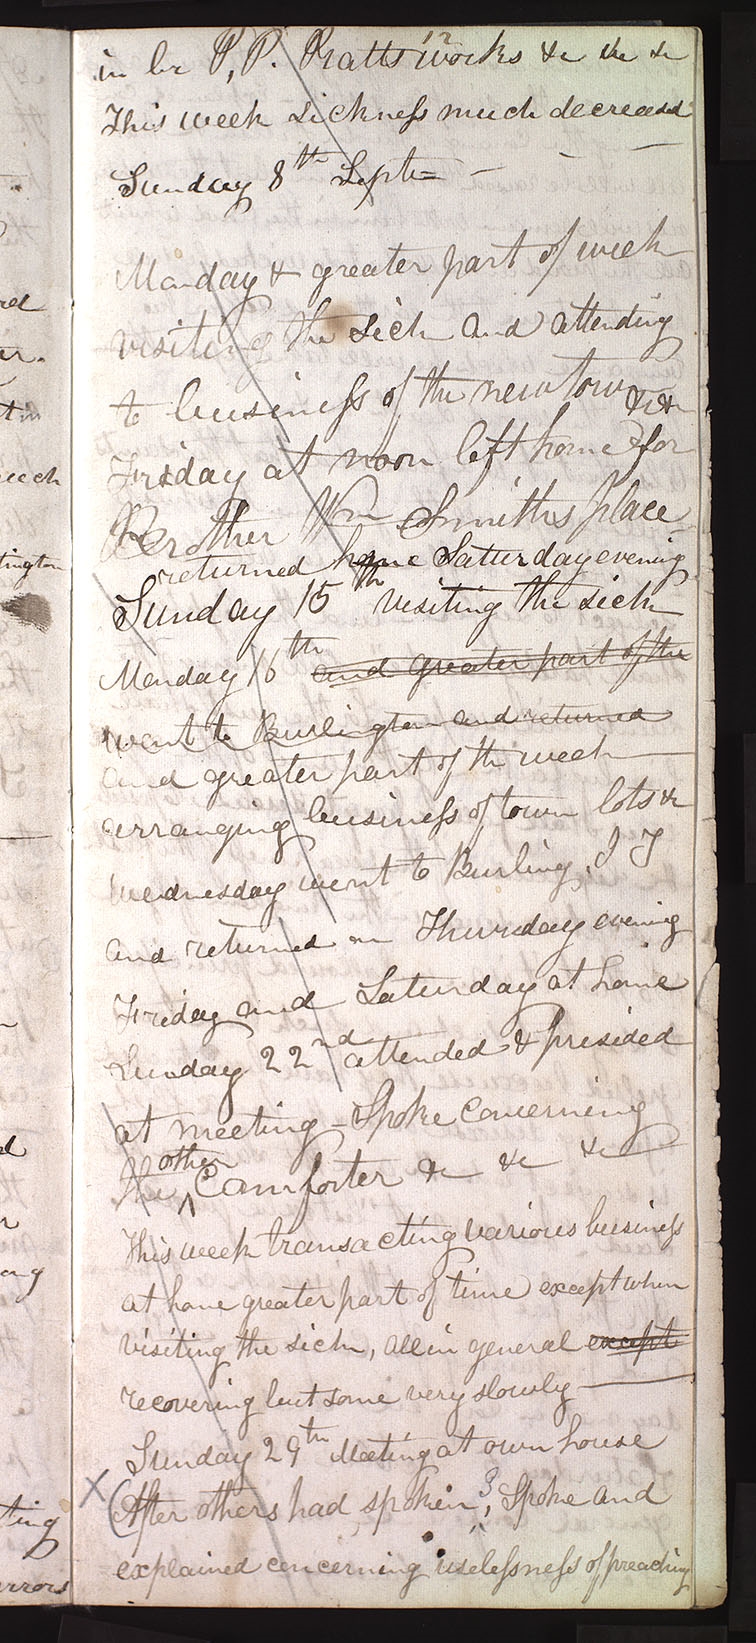 12
in br P, P. Pratts works &c &c &c
This week sickness much decreased
Sunday 8th Septr — — —
Monday & greater part of week
visiting the sick and attending
to business of the new town &c &c
Friday at noon left home for
Brother Wm Smiths place
returned home Saturday evening
Sunday 15th visiting the sick
Monday 16th and greater part of the
went to Burlington and returned
and greater part of the week
arranging business of town lots &c
Wednesday went to Burling, I T
and returned on Thursday evening
Friday and Saturday at home
Sunday 22nd attended & presided
at meeting - Spoke concerning
the other Comforter &c &c &c
This week transacting various business
at home greater part of time except when
visiting the sick, all in general except
recovering but some very slowly —
Sunday 29th Meeting at own house
X (After others had spoken, Spoke and
explained concerning uselessness of preaching
red
er.
eech
lington
ng
ting
errors